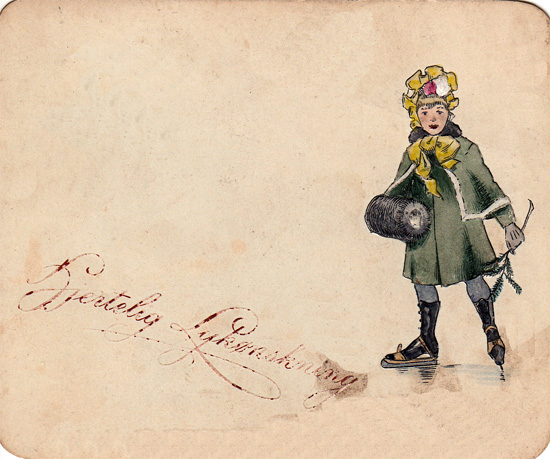 Hjertelig Lykønskning